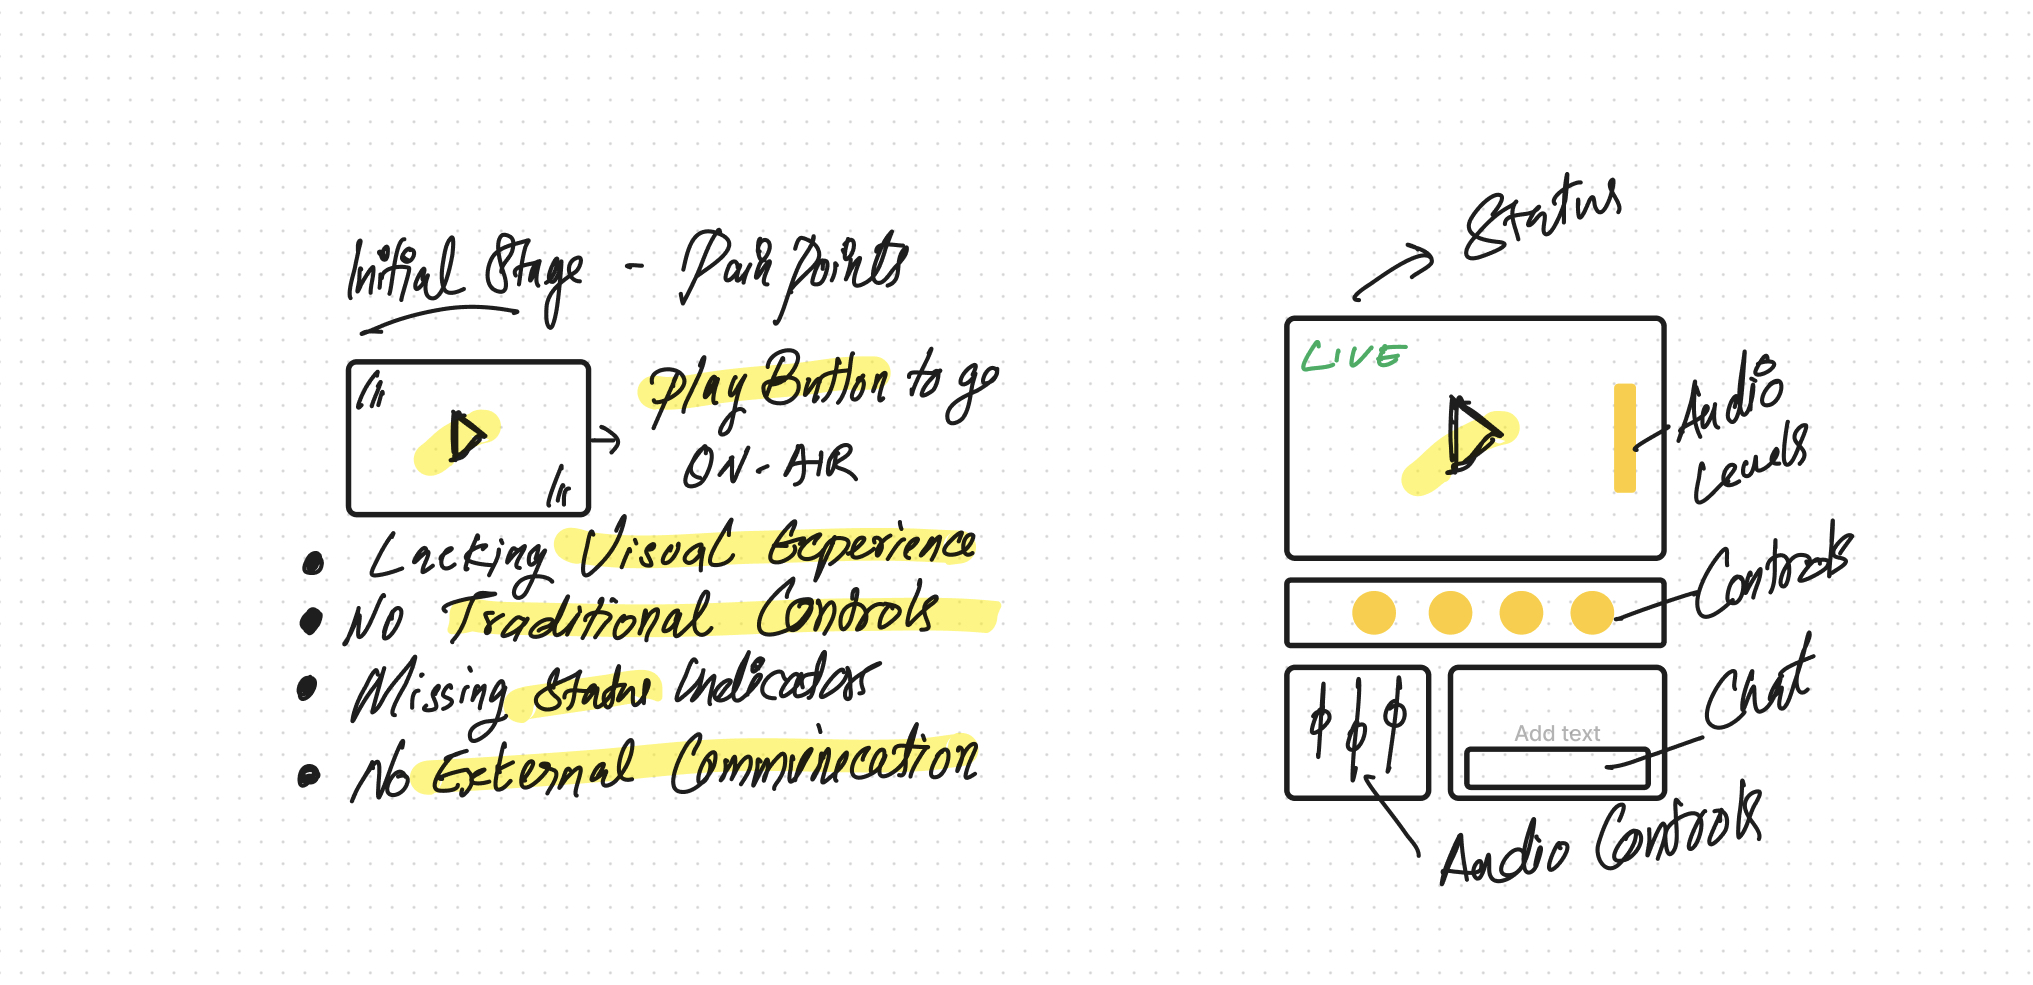 Initial Stage - Pain Points
Play Button to go
ON-AIR
Lacking Visual Experience
No Traditional Controls
Missing Status Indicator
No External Communication
Status
LIVE
Audio
Levels
Controls
Chat
Add text
Audio Controls